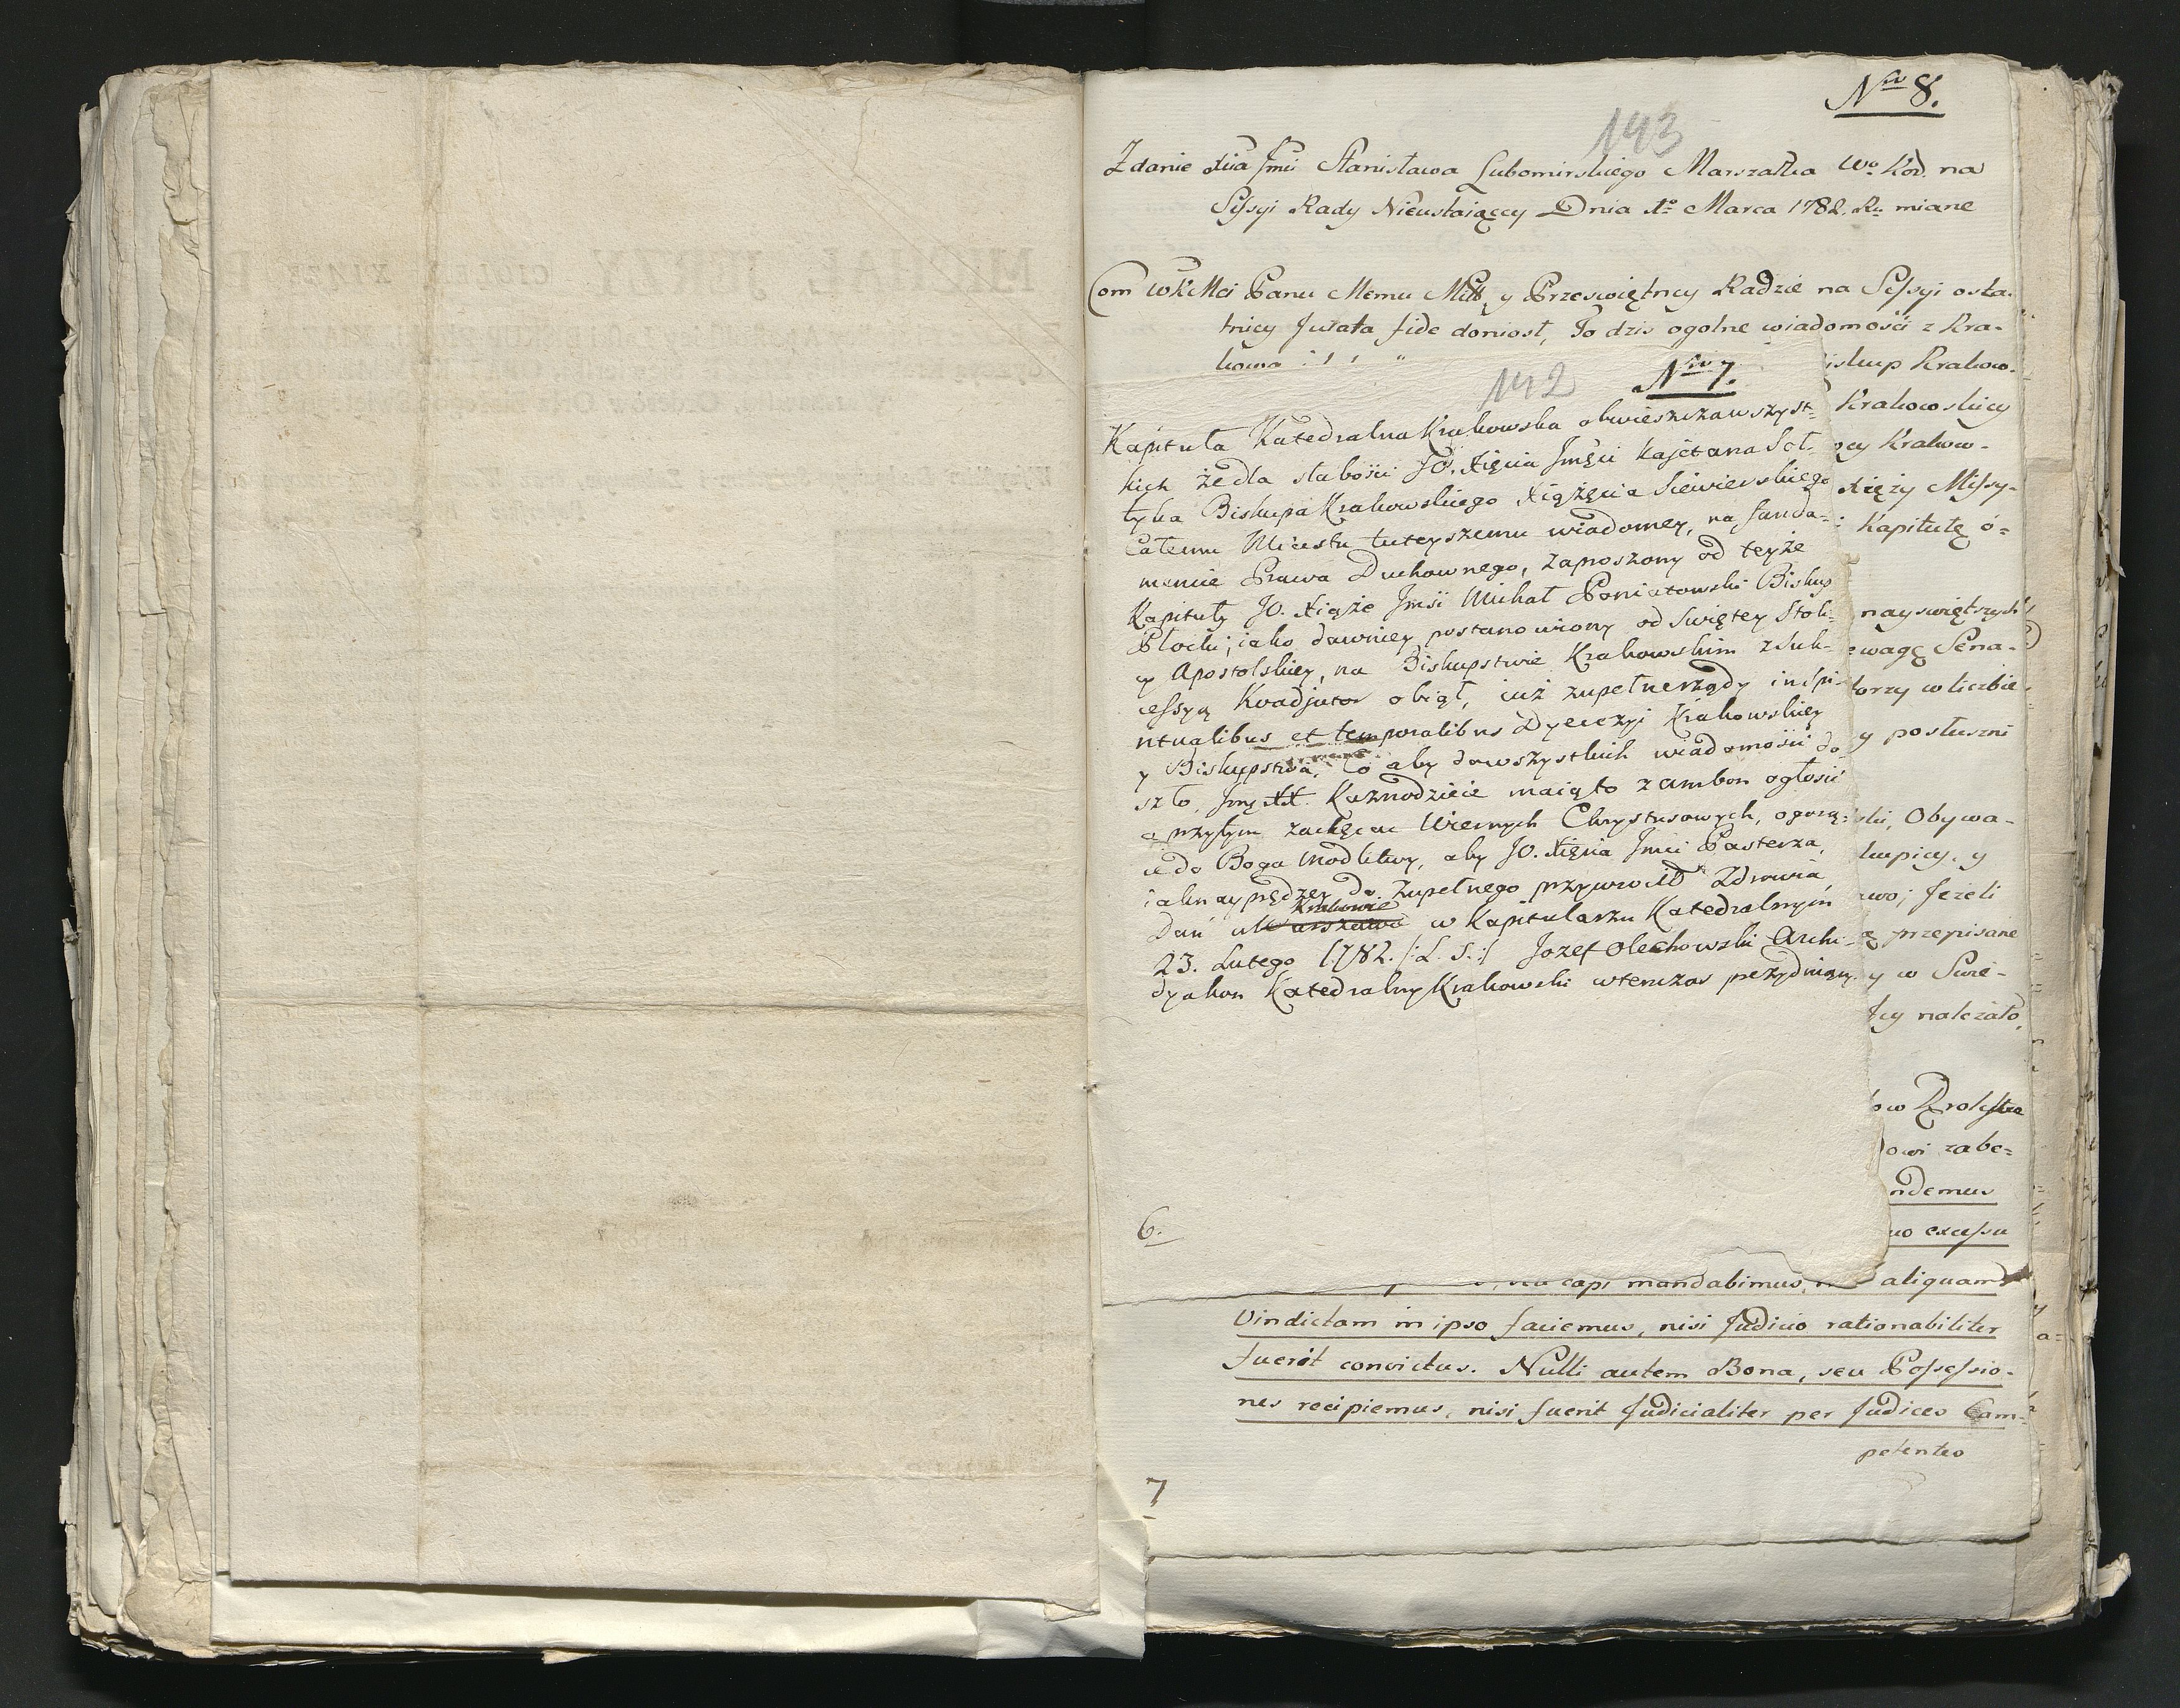 Nro 8.
143
Zdanie Xcia Jmci Stanisława Lubomirskiego Marszałka Wo Kor. na
Sessyi Rady Nieustaiącey Dnia 1o Marca 1782. Ru miane
Com WKMci Panu Memu Mił. y Przeswiętney Radzie na Sessyi osta-
tniey Jurata fide doniosł, To dzis ogolne wiadomości z Kra-
kowa
iskup Krakow-
Krakowskiey
ey Krakow-
Xięży Missy-
Kapitułę o-
nayswiętszych
ewagę Sena-
torzy w liczbie
y posłuszni
ski, Obywa-
kupiey, y
awo; Jeżeli
ą przepisane
y w Swie-
ley należało,
ow Krolestwa
owi zabe-
ndemus
uo excessu
capi mandabimus, aliquam
Vindictam in ipso faciemus, nisi Judicio rationabiliter
fuerit convictus. Nulli autem Bona, seu Possessio-
nes recipiemus, nisi fuerit Judicialiter per Judices Com-
petentes
7
142
Nro 7.
Kapituła Katedralna Krakowska obwieszcza wszyst-
kich że dla słabości JO. Xięcia Jmści Kajetana Soł-
tyka Biskupa Krakowskiego Xiążęcia Siewierskiego
całemu Miastu tuteyszemu wiadomey, na funda-
mencie Prawa Duchownego, zaproszony od teyże
Kapituły JO. Xiąże Jmść Michał Poniatowski Biskup
Płocki; iako dawniey postanowiony od Swiętey Stoli-
cy Apostolskiey, na Biskupstwie Krakowskim z Suk-
cessyą Koadjutor obiął, iuż zupełne rządy in spi-
ritualibus et temporalibus Dyecezyi Krakowskiey
y Biskupstwa, Co aby do wszystkich wiadomości do-
szło, Jmć XX. Kaznodzieie maią to z ambon ogłosić
a przytym zachęcac Wiernych Chrystusowych, o gorą-
ce do Boga modlitwy, aby JO. Xięcia Jmci Pasterza,
iak nayprędzey do zupełnego przywrocił Zdrowia,
Krakowie
Dań w Warszawie w Kapitularzu Katedralnym
23. Lutego 1782. /:L. S.:/ Jozef Olechowski Archi-
dyakon Katedralny Krakowski wtenczas prezyduiący.
6.